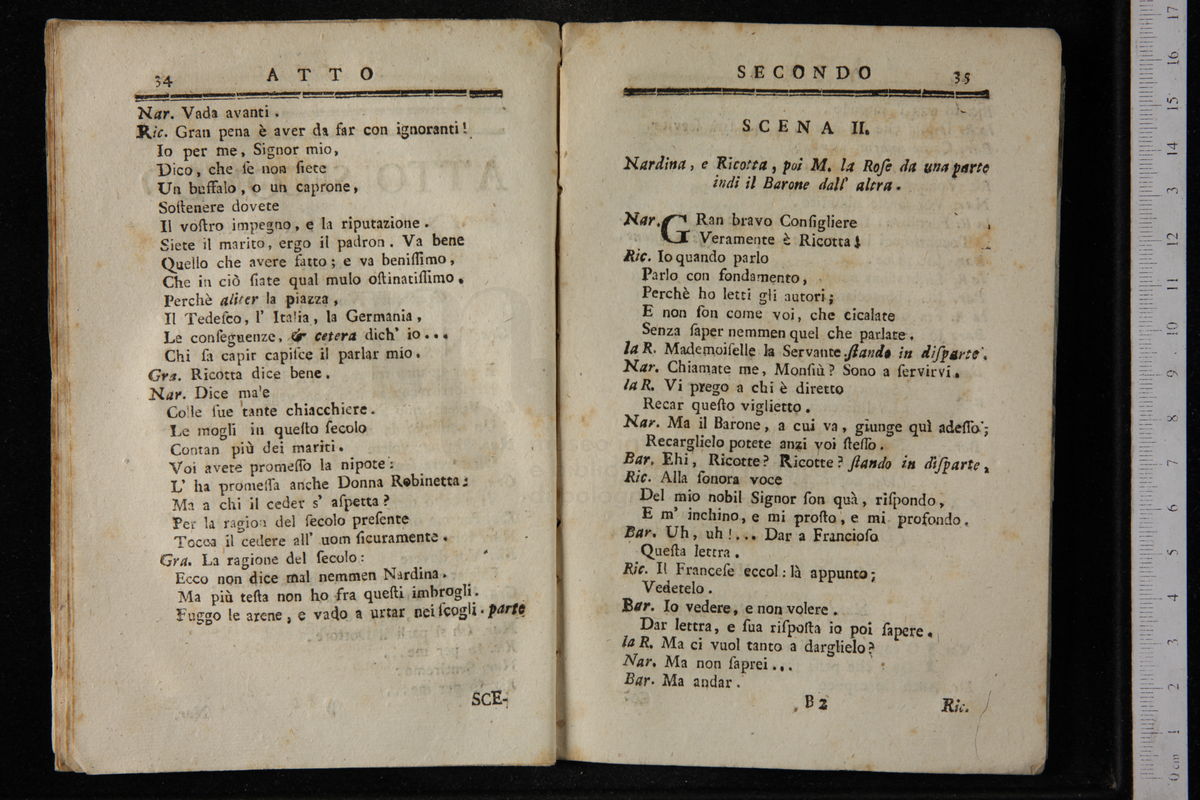 34 ATTO
Nar. Vada avanti.
Ric. Gran pena è aver da far con ignoranti!
Io per me, Signor mio,
Dico, che ſe non ſiete
Un buffalo, o un caprone,
Soſtenere dovete
Il voſtro impegno, e la riputazione.
Siete il marito, ergo il padron. Va bene
Quello che avere fatto; e va beniſſimo,
Che in ciò ſiate qual mulo oſtinatiſſimo.
Perchè aliter la piazza,
Il Tedeſco, l' Italia, la Germania,
Le conſeguenze, & cetera dich' io...
Chi ſa capir capiſce il parlar mio.
Gra. Ricotta dice bene.
Nar. Dice male
Colle ſue tante chiacchiere.
Le mogli in queſto ſecolo
Contan più dei mariti.
Voi avete promeſſo la nipote:
L' ha promeſſa anche Donna Robinetta:
Ma a chi il ceder s' aſpetta?
Per la ragion del ſecolo preſente
Tocca il cedere all' uom ſicuramente.
Gra. La ragione del ſecolo:
Ecco non dice mal nemmen Nardina.
Ma più teſta non ho fra queſti imbrogli.
Fuggo le arene, e vado a urtar nei ſcogli. parte
SCE-
SECONDO 35
SCENA II.
Nardina, e Ricotta, poi M. la Roſe da una parte
indi il Barone dall' altra.
Nar. GRan bravo Conſigliere
Veramente è Ricotta!
Ric. Io quando parlo
Parlo con fondamento,
Perchè ho letti gli autori;
E non ſon come voi, che cicalate
Senza ſaper nemmen quel che parlate.
la R. Mademoiſelle la Servante ſtando in diſparte.
Nar. Chiamate me, Monſiù? Sono a ſervirvi.
la R. Vi prego a chi è diretto
Recar queſto viglietto.
Nar. Ma il Barone, a cui va, giunge quì adeſſo;
Recarglielo potete anzi voi ſteſſo.
Bar. Ehi, Ricotte? Ricotte? ſtando in diſparte,
Ric. Alla ſonora voce
Del mio nobil Signor ſon quà, riſpondo,
E m' inchino, e mi proſto, e mi profondo.
Bar. Uh, uh!... Dar a Francioſo
Queſta lettra.
Ric. Il Franceſe eccol: là appunto;
Vedetelo.
Bar. Io vedere, e non volere.
Dar lettra, e ſua riſpoſta io poi ſapere.
la R. Ma ci vuol tanto a darglielo?
Nar. Ma non ſaprei...
Bar. Ma andar.
B 2 Ric.